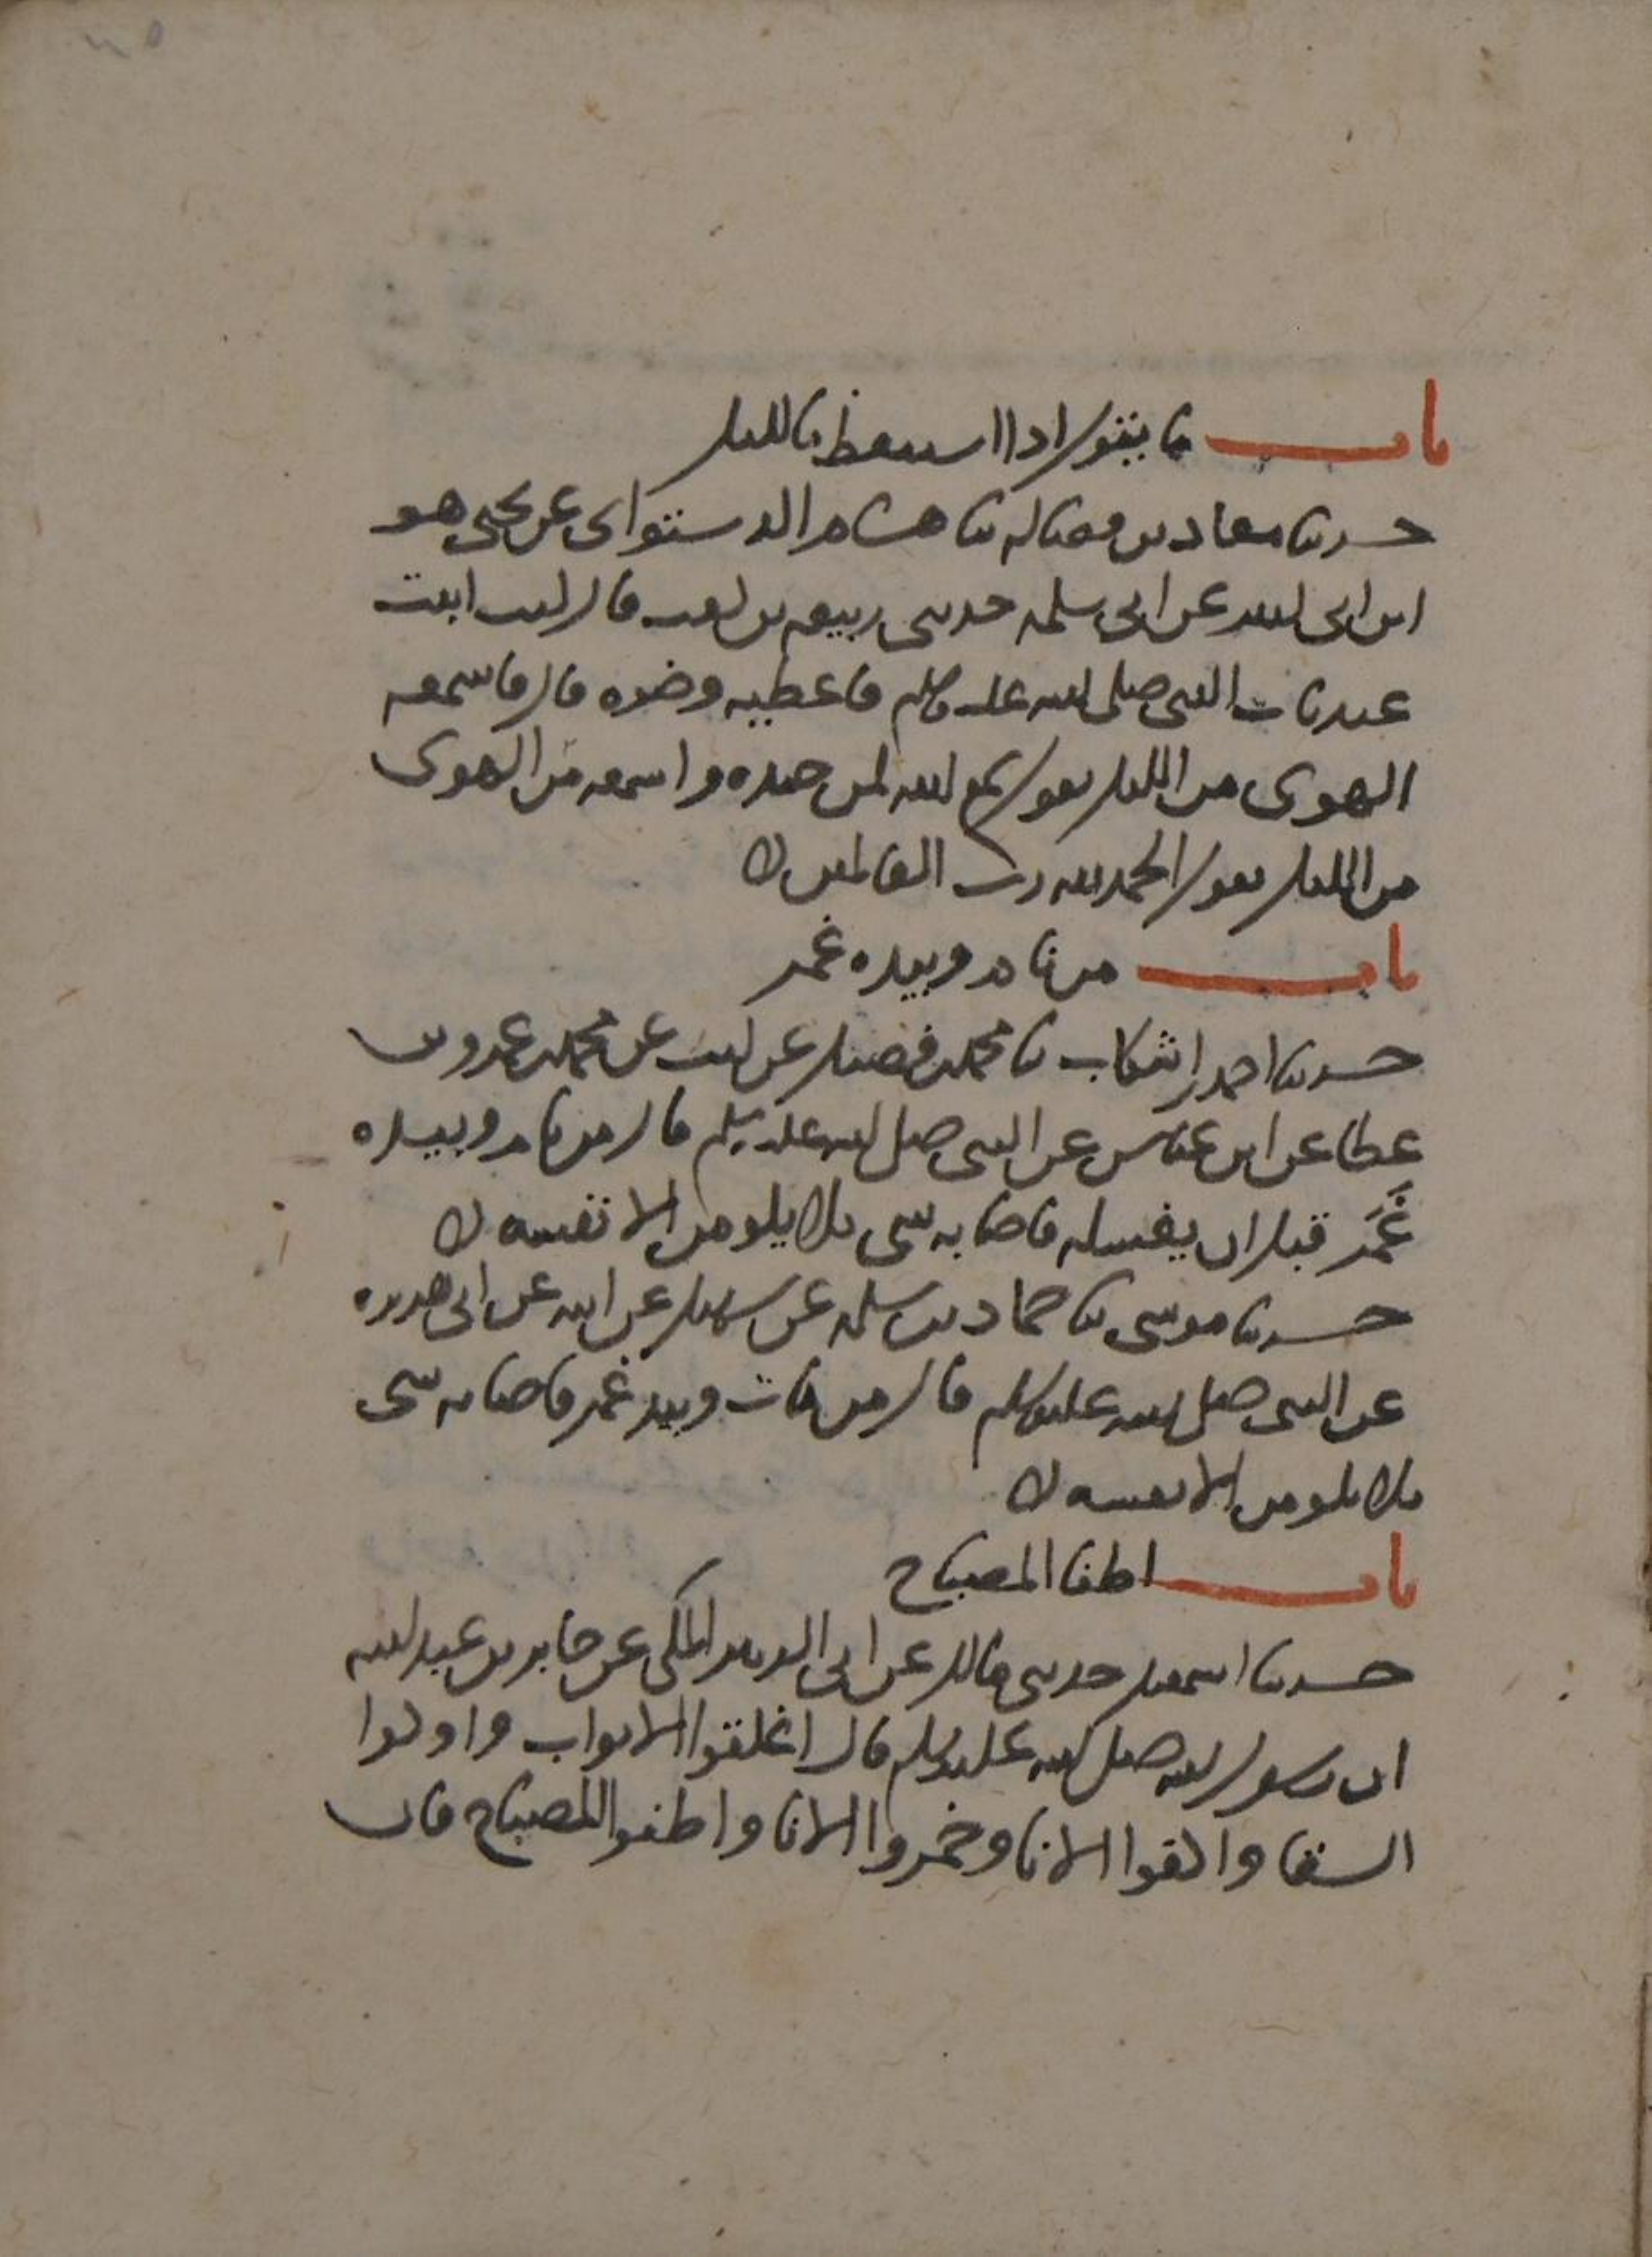 باب ما يقول اذا استيقظ بالليل
حدثنا معاذ بن فضاله ثنا هشام الدستوای عن يحيى هو
ابن ابى كثير عن ابى سلمه حدثنى ربيعه بن كعب قال كنت ابيت
عند باب النبى صلى الله عليه وسلم فاعطيه وضوه قال فاسمعه
الهوى من الليل يقول سمع الله لمن حمده واسمعه من الهوى
من الليل يقول الحمد لله رب العالمين
باب من نام وبيده غمر
حدثنا احمد بن اشكاب ثنا محمد بن فضيل عن ليث عن محمد بن عمرو بن
عطا عن ابن عباس عن النبى صلى الله عليه وسلم قال من نام وبيده
غَمَر قبل ان يغسله فاصابه شى فلا يلومن الا نفسه
حدثنا موسى ثنا حماد بن سلمه عن سهيل عن ابيه عن ابى هريره
عن النبى صلى الله عليه وسلم قال من بات وبيده غمر فاصابه شى
فلا يلومن الا نفسه
باب اطفا المصباح
حدثنا اسمعيل حدثنى مالك عن ابى الزبير المكى عن جابر بن عبد الله
ان رسول الله صلى الله عليه وسلم قال اغلقوا الابواب واوكوا
السقا واكفوا الانا وخمروا الانا واطفوا المصباح فان